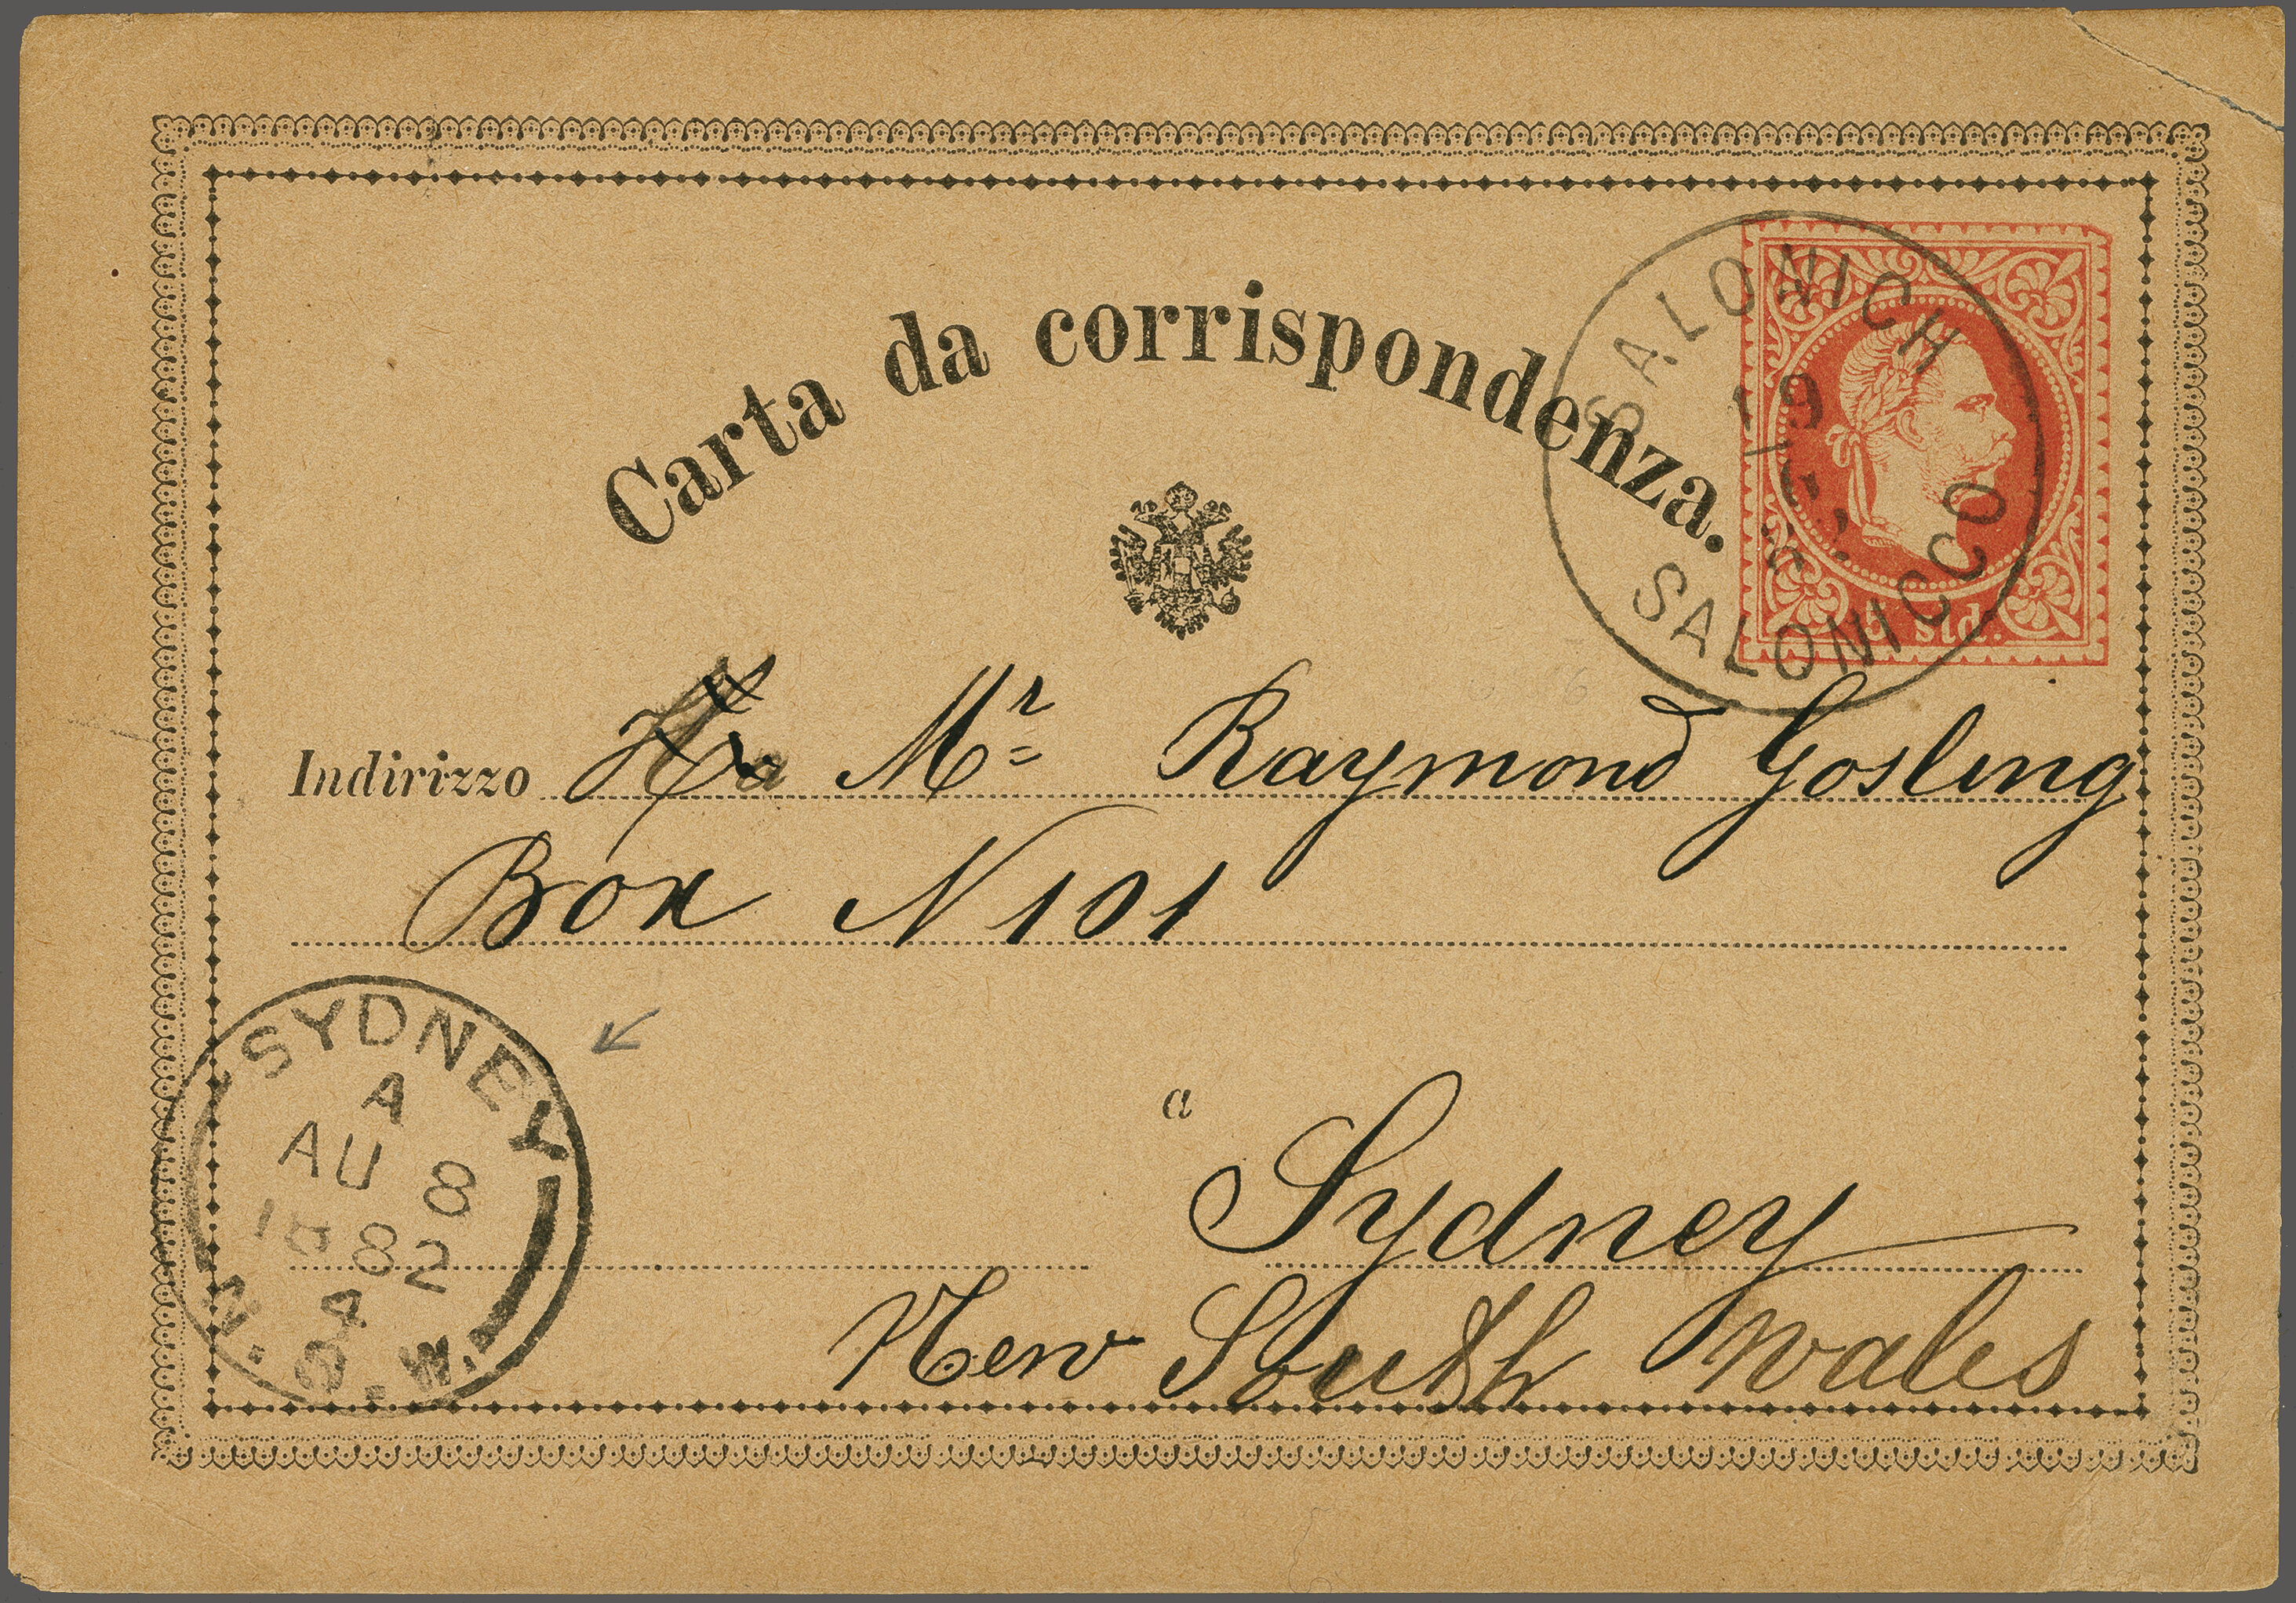 Carta da corrispondenza.
SALONICH
19
SALONICCO
5 sld.
Indirizzo Mr Raymond Gosling
Box N 101
a Sydney
New South Wales
SYDNEY
A
AU 8
1882
A
N.S.W.